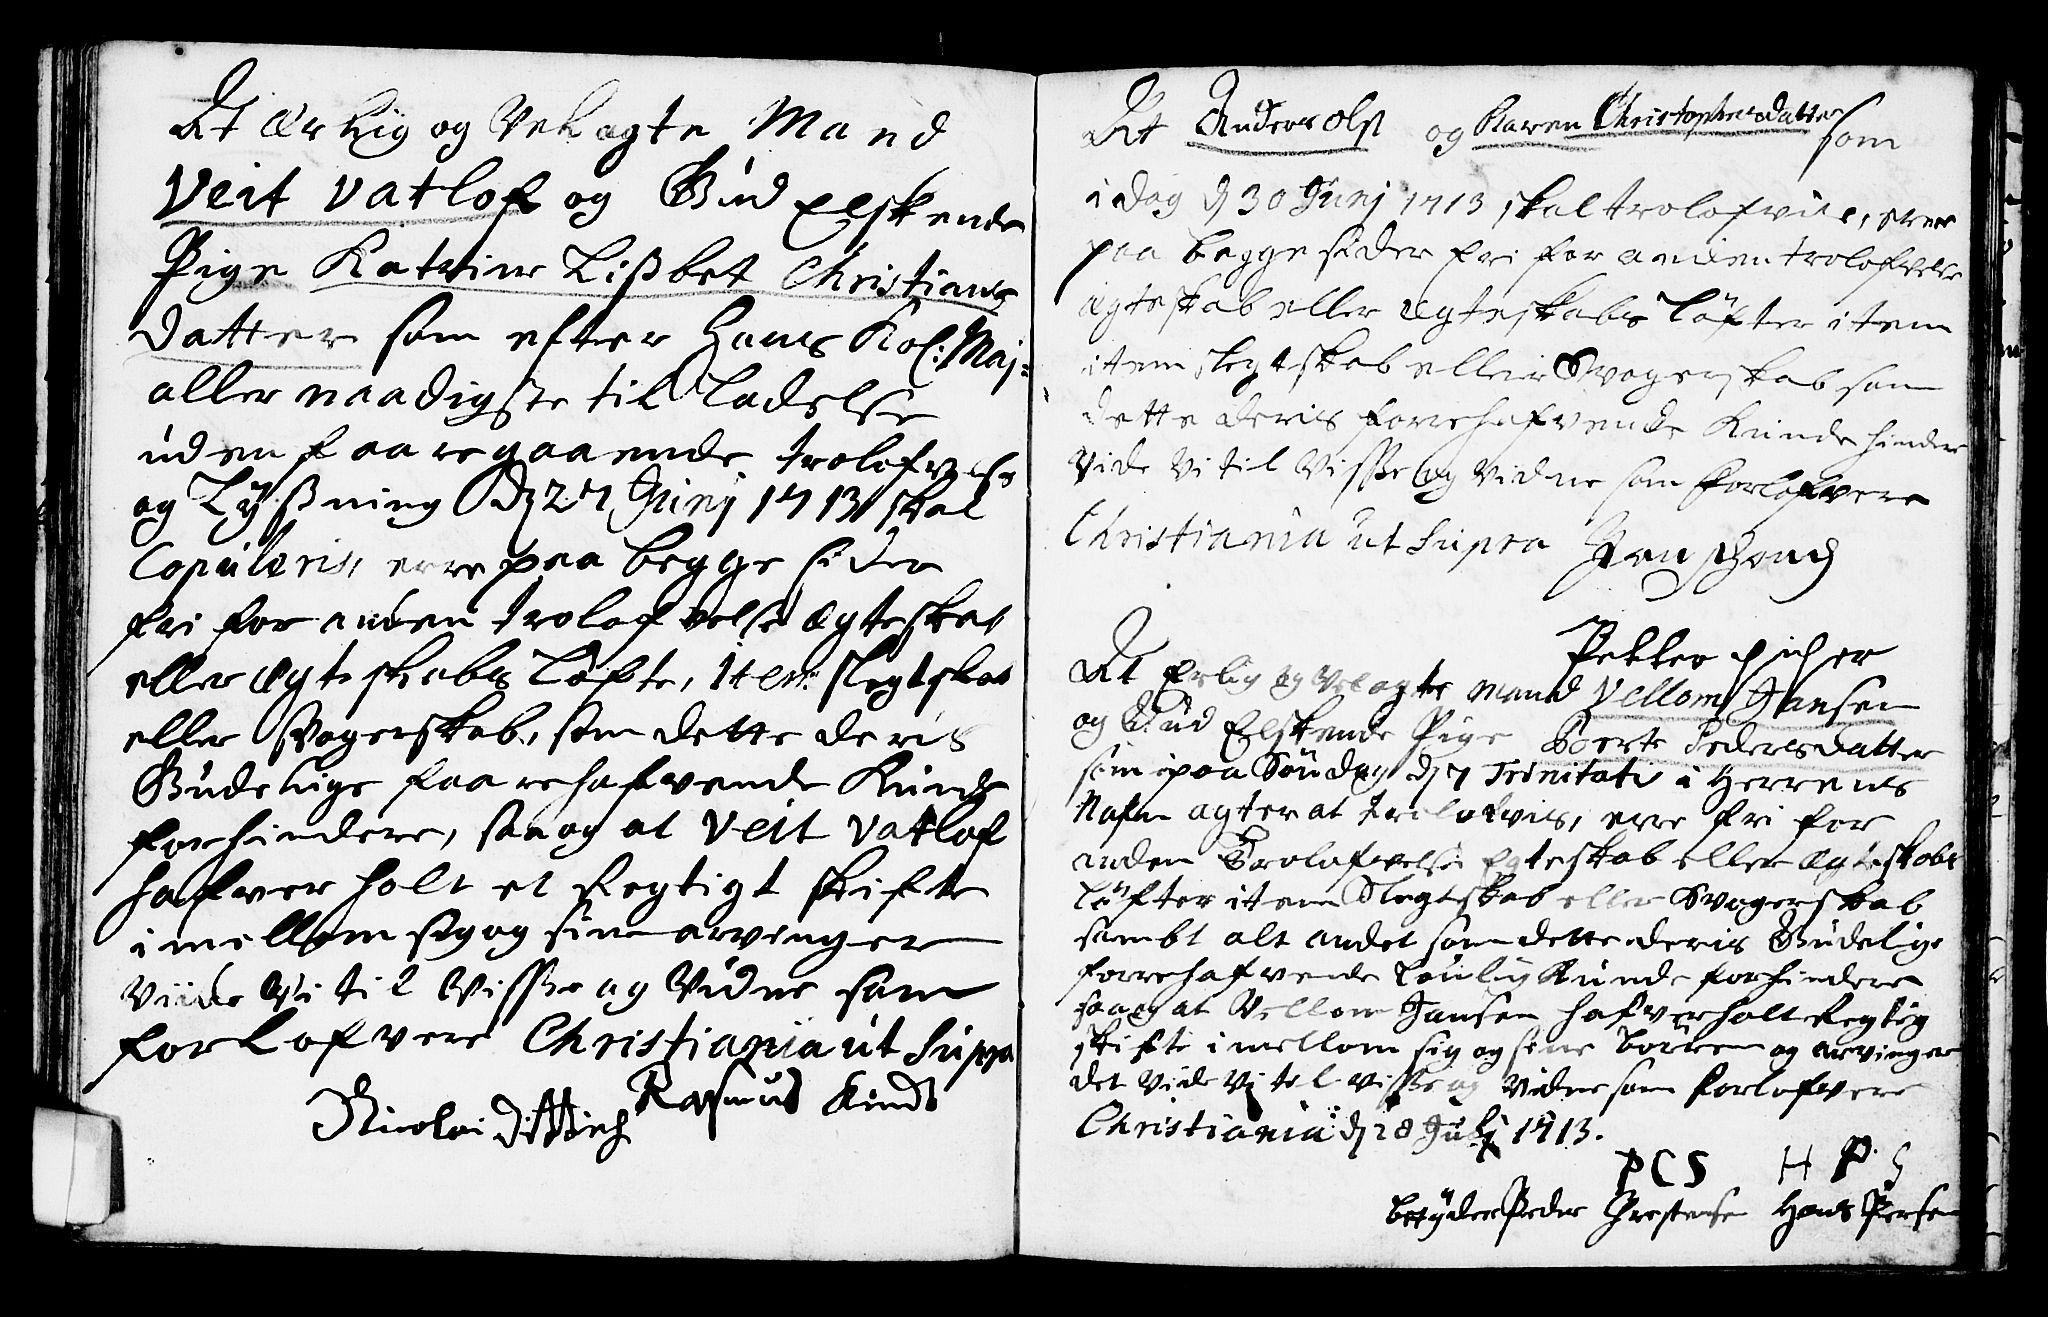 At ærlig og Velagte Mand
Veit Vatlof og Gud Elskende
Pige Katrine Lißbet Christians
datter som efter Hans Kol: Maj:
aller naadigste til Ladelse
uden foaregaaende trolofvelse
og Lyßning d 27 Junj 1713 skal
Copuleris, erre paa begge sider
fri for anden trolofvelse ægteskab
eller ægteskabs Løfte, item slegtskab
eller Svogerskab, som dette deris
Gudelige foarehafvende Kunde
forhindere, saa og at Veit Vatlof
hafver holt et Regtigt skifte
imellom sig og sine arvinger
Viide Vi til Visse og Vidne som
forlofvere Christiania ut Supra
Rasmus Kinds
Nicolai Dittrich
At Anders Olss og Karen Christophersdatter som
i dag d 30 Junj 1713 skal trolofvis, erre
paa begge sider fri for anden trolofvelse
ægteskab eller ægteskabs Løfter item
item slegtskab eller Svogerskab som
dette deris forrehafvende Kunde hindre
Vide Vi til Visse og Vidne som forlofvere
Christiania ut Supra
Petter
At Erlig og Velagte mand Vellom Jansen
og Gud Elskende Pige Boerte Pedersdatter
som paa Søndag d 7 Trinitatis i Herrens
Nafn agter at trolofvis, erre fri for
anden Trolofvelse Egteskab eller ægteskabs
Løfter item Slegtskab eller Svogerskab
sambt alt andet som dette deris Gudelige
forrehafvende Loulig Kunde forhindere
saa og at Vellom Jansen hafver holt Regtig
skifte imellom sig og sine børren og arvinger
det Viide Vi til visse og Vidne som forlofvere
Christiania d 28 Julj 1713.
P C S H P S
betyder Peder Chrestensen Hans Persen